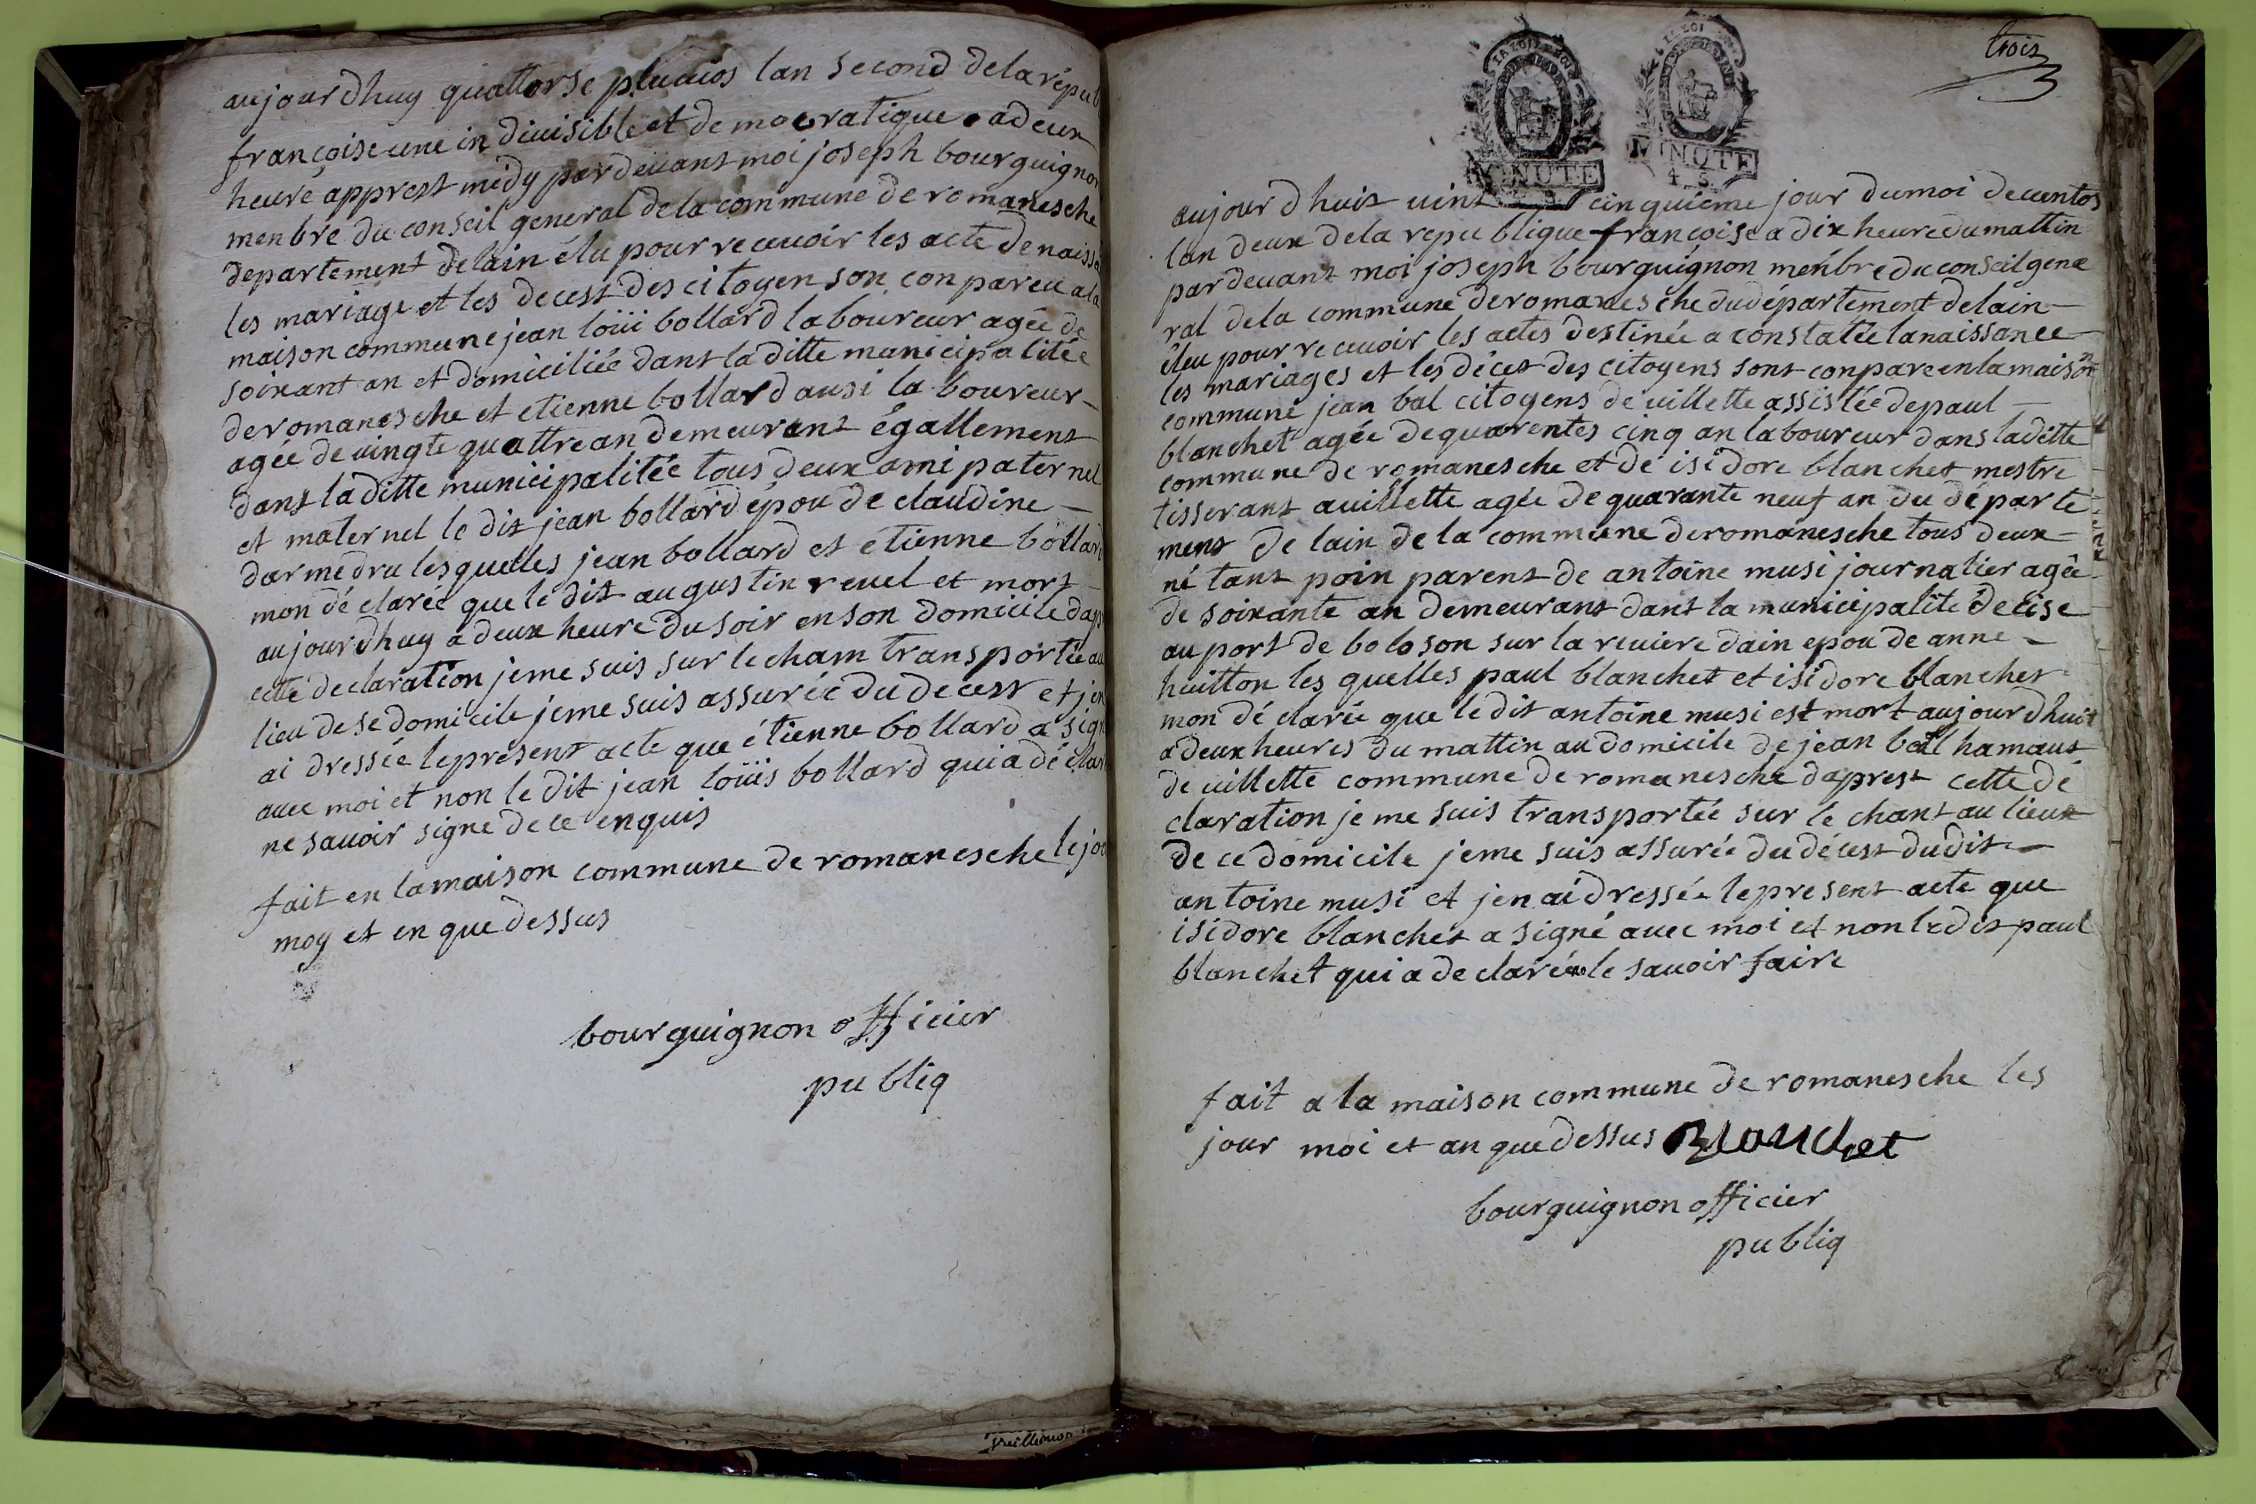 aujour dhuy quattorse pluuios lan second de la répub
françoise une in diuisible et democratique a deux
heure apprest midy par deuant moi joseph bourguignon
menbre du conseil general de la commune de romanesche
departement delain élu pour receuoir les acte de naissa
les mariage et les decest des citoyen son conpareu a la
maison commune jean loüi bollard laboureur agée de
soixant an et domiciliée dans la ditte municipalitée
de romanesche et etienne bollard ausi la boureur
agée de uingte quattre an demeurant égallement
dans la ditte municipalitée tous deux ami paternel
et maternel le dit jean bollard épou de claudine
darmedru lesquelles jean bollard et etienne bollard
mon dé clarée que le dit augustin reuel et mort
aujourdhuy a deux heure du soir en son domicile dapr
cette declaration jeme suis sur le cham transportée au
lieu de se domicile jeme suis assurée du decest et jen
ai dressée le present acte que étienne bollard a signe
auec moi et non le dit jean loüis bollard qui a dé clar
ne sauoir signe de ce enquis
fait en la maison commune de romanesche le jou
moy et en que dessus
bourguignon officier
publiq
trois
3
MINUTE
MINUTE
4 S
aujour dhuit uint cinquieme jour du moi de uentos
lan deux de la republique françoise a dix heure du mattin
par deuant moi joseph bourguignon menbre du conseil gene
ral de la commune de romanesche du département delain
éleu pour receuoir les actes destinée a constatée la naissance
les mariages et les décet des citoyens sont conpare en la maison
commune jean bal citogens de uillette assistée de paul
blanchet agée de quarentes cinq an laboureur dans la ditte
commune de romanesche et de isidore blanchet mestre
tisserant a uillette agée de quarante neuf an du départe
ment de lain de la commune de romanesche tous deux
né tant poin parent de antoine musi journalier agée
de soixante an demeurant dans la municipalité de cise
au port de boloson sur la reuiere dain epou de anne
huitton les quelles paul blanchet et isidore blanchet
mon dé clarée que le dit antoine musi est mort aujour dhuit
a deux heures du mattin au domicile de jean ball hamaut
de uillette commune de romanesche daprest cette dé
claration je me suis transportée sur le chant au lieux
de ce domicile jeme suis assurée du décest du dit
antoine musi et jen ai dressée le present acte que
isidore blanchet a signé auec moi et non le dit paul
blanchet qui a de clarée ne le sauoir faire
fait a la maison commune de romanesche les
jour moi et an que dessus Blanchet
bourguignon officier
publiq